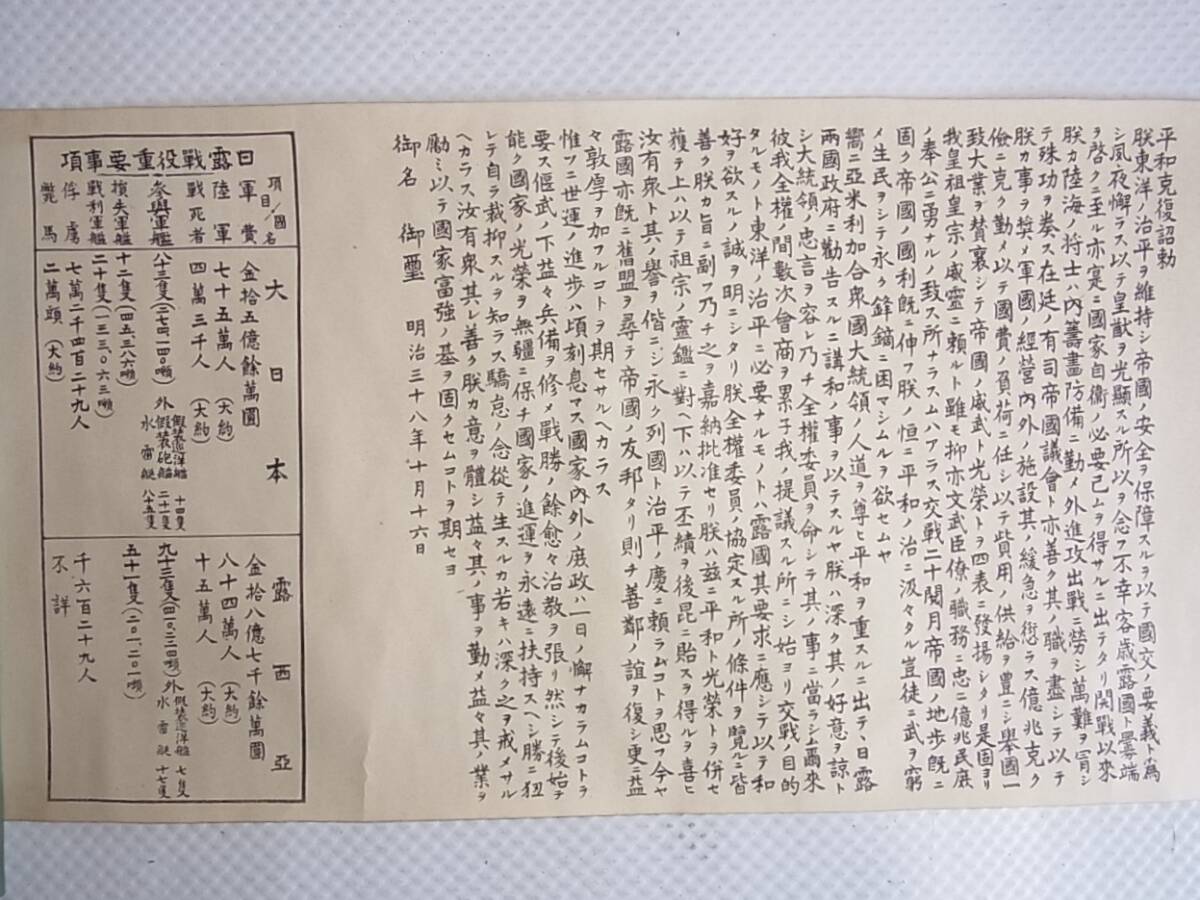 平和克復詔勅
朕東洋ノ治平ヲ維持シ帝國ノ安全ヲ保障スルヲ以テ國交ノ要義ト為
シ夙夜懈ラス以テ皇猷ヲ光顯スル所以ヲ念フ不幸客歳露國ト釁端
ヲ啓クニ至ル亦寔ニ國家自衛ノ必要己ムヲ得サルニ出テタリ開戰以來
朕カ陸海ノ将士ハ内籌畫防備ニ勤メ外進攻出戰ニ勞シ萬難ヲ冐シ
テ殊功ヲ奏ス在廷ノ有司帝國議會ト亦善ク其ノ職ヲ盡シ以テ
朕カ事ヲ奬メ軍國ノ經營内外ノ施設其ノ緩急ヲ愆ラス億兆克ク
儉ニ克ク勤メ以テ國費ノ負荷ニ任シ以テ貲用ノ供給ヲ豊ニシ舉國一
致大業ヲ賛襄シテ帝國ノ威武ト光榮トヲ四表ニ發揚シタリ是固ヨリ
我皇祖皇宗ノ威靈ニ頼ルト雖モ抑亦文武臣僚ノ職務ニ忠ニ億兆民庶
ノ奉公ニ勇ナルノ致ス所ナラスムハアラス交戰二十閲月帝國ノ地歩既ニ
固ク帝國ノ國利既ニ伸フ朕ノ恒ニ平和ノ治ニ汲々タル豈徒ニ武ヲ窮
メ生民ヲシテ永ク鋒鏑ニ困マシムルヲ欲セムヤ
嚮ニ亞米利加合衆國大統領ノ人道ヲ尊ヒ平和ヲ重スルニ出テ、日露
兩國政府ニ勸告スルニ講和ノ事ヲ以テスルヤ朕ハ深ク其ノ好意ヲ諒ト
シ大統領ノ忠言ヲ容レ乃チ全權委員ヲ命シテ其ノ事ニ當ラシム爾來
彼我全權ノ間數次會商ヲ累子我ノ提議スル所ニシ始ヨリ交戰ノ目的
タルモノト東洋ノ治平ニ必要ナルモノトハ露國其要求ニ應シテ以テ和
好ヲ欲スルノ誠ヲ明ニシタリ朕全權委員ノ協定スル所ノ條件ヲ覽ルニ皆
善ク朕カ旨ニ副フ乃チ之ヲ嘉納批准セリ朕ハ茲ニ平和ト光榮トヲ併セ
獲テ上ハ以テ祖宗ノ靈鑑ニ對ヘ下ハ以テ丕績ヲ後昆ニ貽スヲ得ルヲ喜ヒ
汝有衆ト其ノ譽ヲ偕ニシ永ク列國ト治平ノ慶ニ頼ラムコトヲ思フ今ヤ
露國亦既ニ舊盟ヲ尋テ帝國ノ友邦タリ則チ善鄰ノ誼ヲ復シ更ニ益
々敦厚ヲ加フルコトヲ期セサルヘカラス
惟フニ世運ノ進歩ハ頃刻息マス國家内外ノ庶政ハ一日ノ懈ナカラムコトヲ
要ス偃武ノ下益々兵備ヲ修メ戰勝ノ餘愈々治教ヲ張リ然シテ後始テ
能ク國家ノ光榮ヲ無疆ニ保チ國家ノ進運ヲ永遠ニ扶持スヘシ勝ニ狃
レテ自ラ裁抑スルヲ知ラス驕怠ノ念從テ生スルカ若キハ深ク之ヲ戒メサル
ヘカラス汝有衆其レ善ク朕カ意ヲ體シ益々其ノ事ヲ勤メ益々其ノ業ヲ
勵ミ以テ國家富強ノ基ヲ固クセムコトヲ期セヨ
御名　御璽　明治三十八年十月十六日
日露戰役重要事項
項目/國名　大日本　露西亞
軍費　金拾五億餘萬圓　金拾八億七千餘萬圓
陸軍　七十五萬人（大約）　八十四萬人（大約）
戰死者　四萬三千人（大約）　十五萬人（大約）
参與軍艦　八十三隻（二七四一一四〇噸）外　假装巡洋艦　十四隻　假装砲艦　二十一隻　水雷艇　八十五隻　九十二隻　外　假装巡洋艦　七隻　水雷艇　十七隻
損失軍艦　十二隻（四五三八六噸）　五十一隻（二〇一、二〇一噸）
戰利軍艦　二十隻（一三三〇六三噸）
俘虜　七萬二千四百二十九人　千六百二十九人
斃馬　二萬頭（大約）　不詳